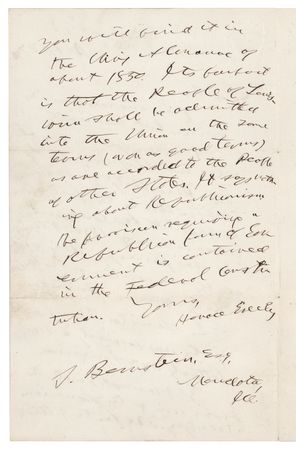 you will find it in
the Whig Almanac of
about 1850. Its purport
is that the People of Louis
iana shall be admitted
into the Union on the same
terms (or on as good terms)
as are accorded to the People
of other States. It says noth
ing about Republicanism
The provision requiring a
Republican form of Gov
ernment is contained
in the Federal Consti
tution.
Yours,
Horace Greeley
S. Bernstein, Esq,
Mendota,
Ill.